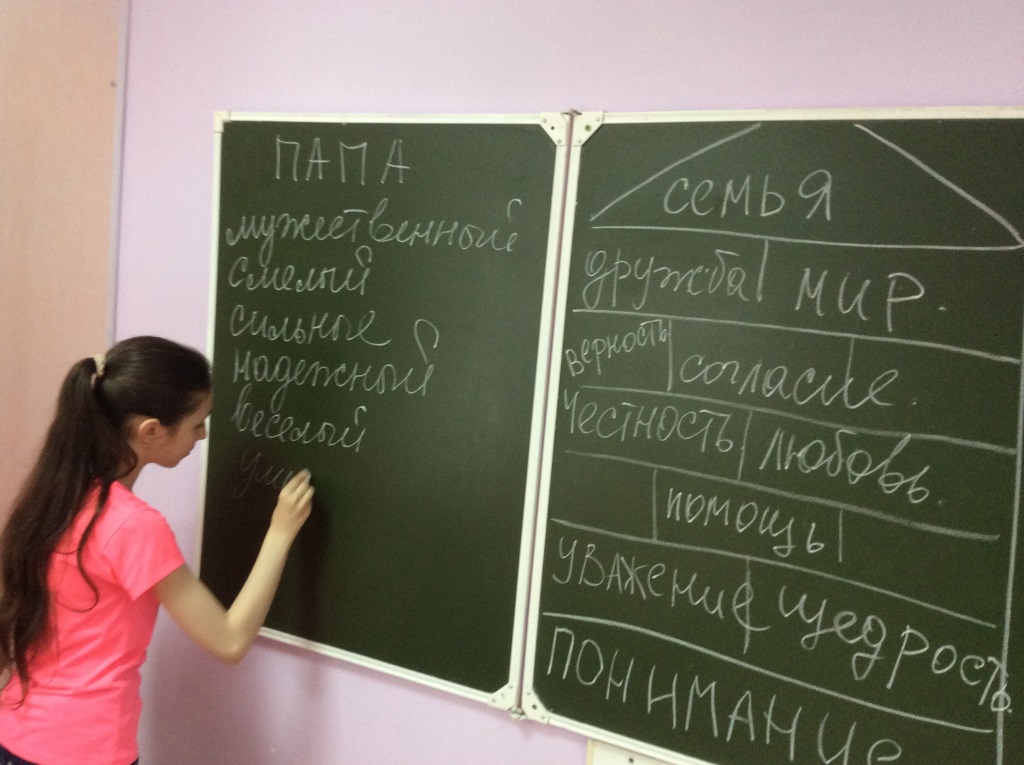 ПАПА
мужественный
смелый
сильные
надежный
веселый
семья
дружба мир.
верность согласие.
Честность любовь.
помощь
уважение щедрость.
ПОНИМАНИе